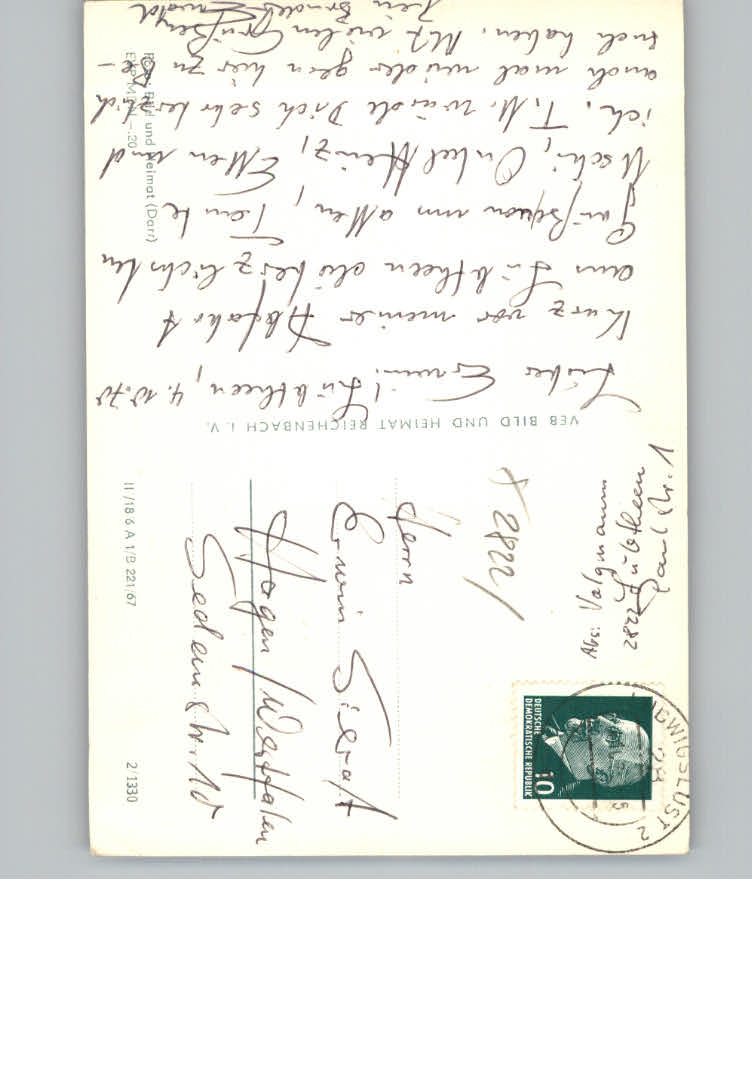 Lieber Erwin! Lübtheen, 4.10.70
Kurz vor meiner Abfahrt
aus Lübtheen die herzlichsten
Grüße von allen, Tante
Uschi, Onkel Heinz, Ellen und
ich. T. M. würde Dich sehr herzlich
auch mal wieder gern hier zu Be-
such haben. Mit vielen Grüßen
Dein Bruder Ewald
VEB BILD UND HEIMAT REICHENBACH i. V.
Foto: Bild und Heimat (Darr)
EVP M –.20
II/18 6 A 1/B 221/67
2/1330
Abs: Volgmann
2822 Lübtheen
X 2822
Herrn
Erwin Sieraf
Hagen/Westfalen
DEUTSCHE
DEMOKRATISCHE REPUBLIK
10
LUDWIGSLUST 2